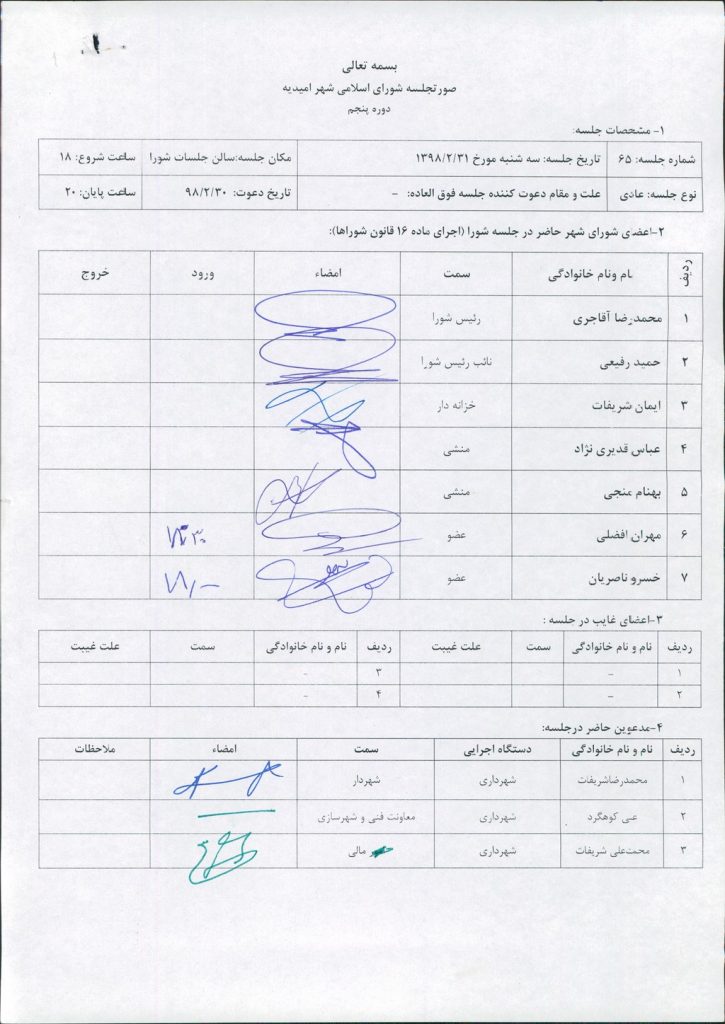 بسمه تعالی
صورتجلسه شورای اسلامی شهر امیدیه
دوره پنجم
۱- مشخصات جلسه:
شماره جلسه: ۶۵ تاریخ جلسه: سه شنبه مورخ ۱۳۹۸/۲/۳۱ مکان جلسه:سالن جلسات شورا ساعت شروع: ۱۸
نوع جلسه: عادی علت و مقام دعوت کننده جلسه فوق العاده: - تاریخ دعوت: ۹۸/۲/۳۰ ساعت پایان: ۲۰
۲-اعضای شورای شهر حاضر در جلسه شورا (اجرای ماده ۱۶ قانون شوراها):
ردیف نام ونام خانوادگی سمت امضاء ورود خروج
۱ محمدرضا آقاجری رئیس شورا
۲ حمید رفیعی نائب رئیس شورا
۳ ایمان شریفات خزانه دار
۴ عباس قدیری نژاد منشی
۵ بهنام منجی منشی
۶ مهران افضلی عضو
۷ خسرو ناصریان عضو
۳-اعضای غایب در جلسه :
ردیف نام و نام خانوادگی سمت علت غیبت ردیف نام و نام خانوادگی سمت علت غیبت
۱ - ۳ -
۲ - ۴ -
۴-مدعوین حاضر درجلسه:
ردیف نام و نام خانوادگی دستگاه اجرایی سمت امضاء ملاحظات
۱ محمدرضاشریفات شهرداری شهردار
۲ کوهگرد شهرداری معاونت فنی و شهرسازی
۳ محمتعلی شریفات شهرداری مالی